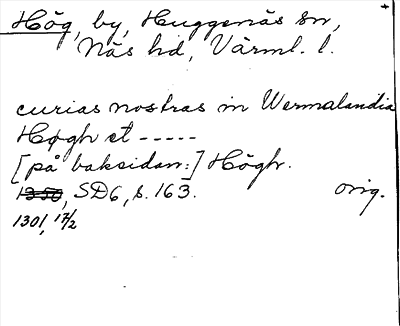 Hög, by, Huggenäs sn,
Näs hd, Värml. l.
curias nostras in Wermalandia
Høgh et -----
[på baksidan:] Högh.
1350, SD6, s. 163. orig.
1301, 17/2